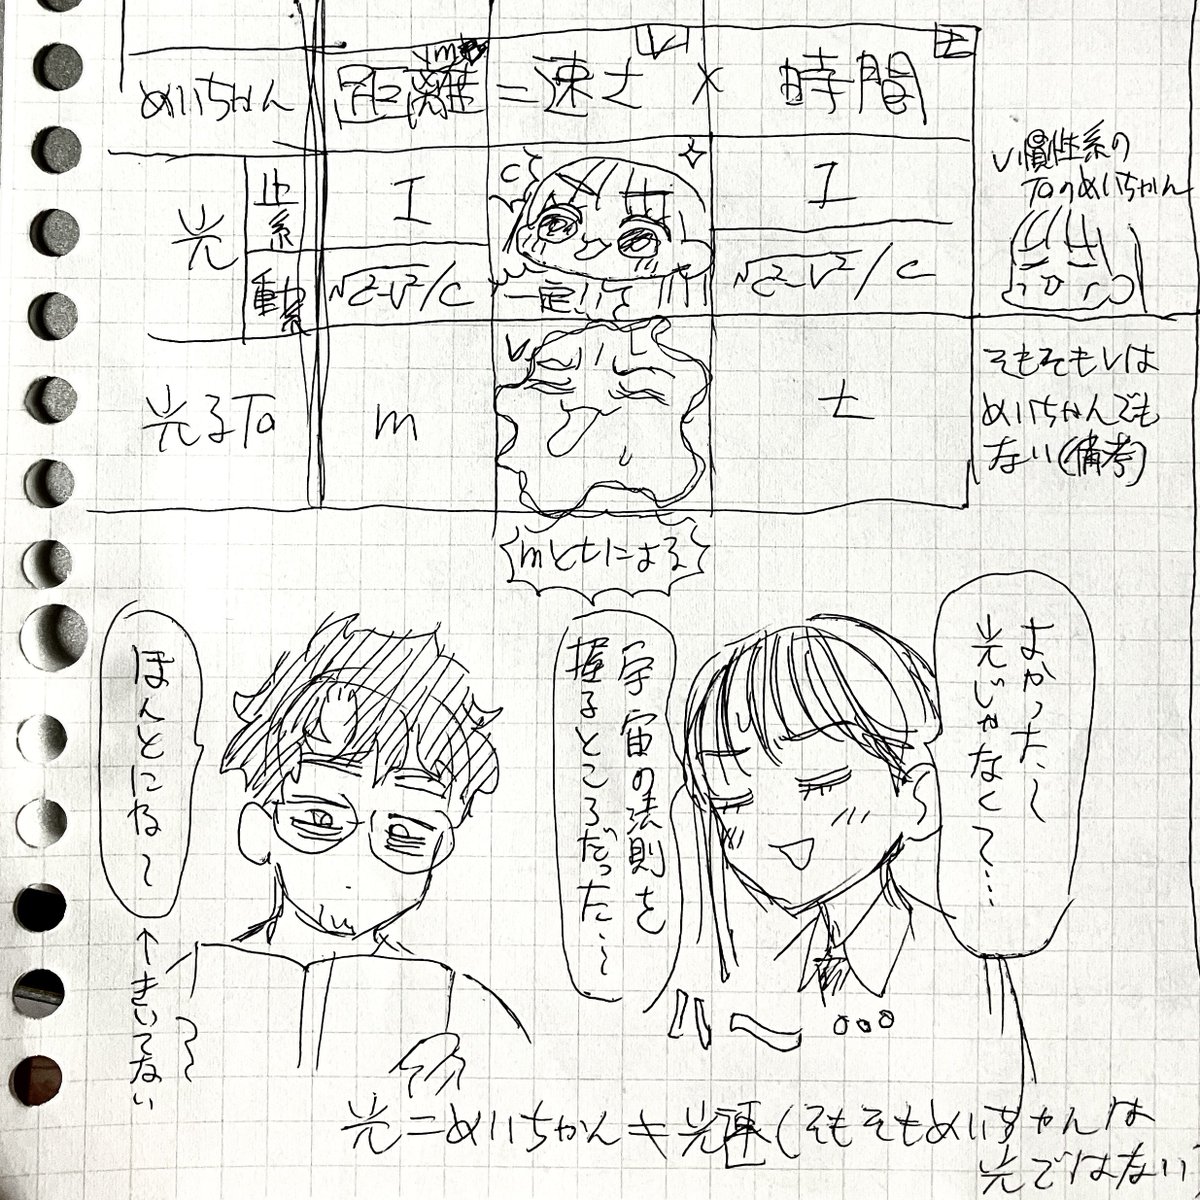 めいちゃん 距離 = 速さ × 時間
m
V
t
光
止系 I C I
動系 √c²-v²/c 一定いて √c²-v²/c
V慣性系の
Taのめいちゃん
光子Ta m V t
そもそもVは
めいちゃんでも
ない(備考)
mとtによる
よかった〜
光じゃなくて…
宇宙の法則を
握るところだった〜
ほんとにね〜
↑きいてない
ハ〜 ○○○
光=めいちゃん≠光速(そもそもめいちゃんは
光ではない)